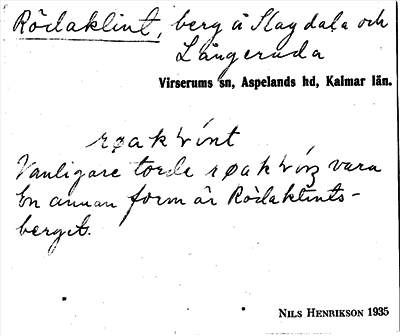 Rödaklint, berg å Slagdala och
Långeruda
Virserums sn, Aspelands hd, Kalmar län.
Vanligare torde vara
En annan form är Rödaklints-
berget.
NILS HENRIKSON 1935